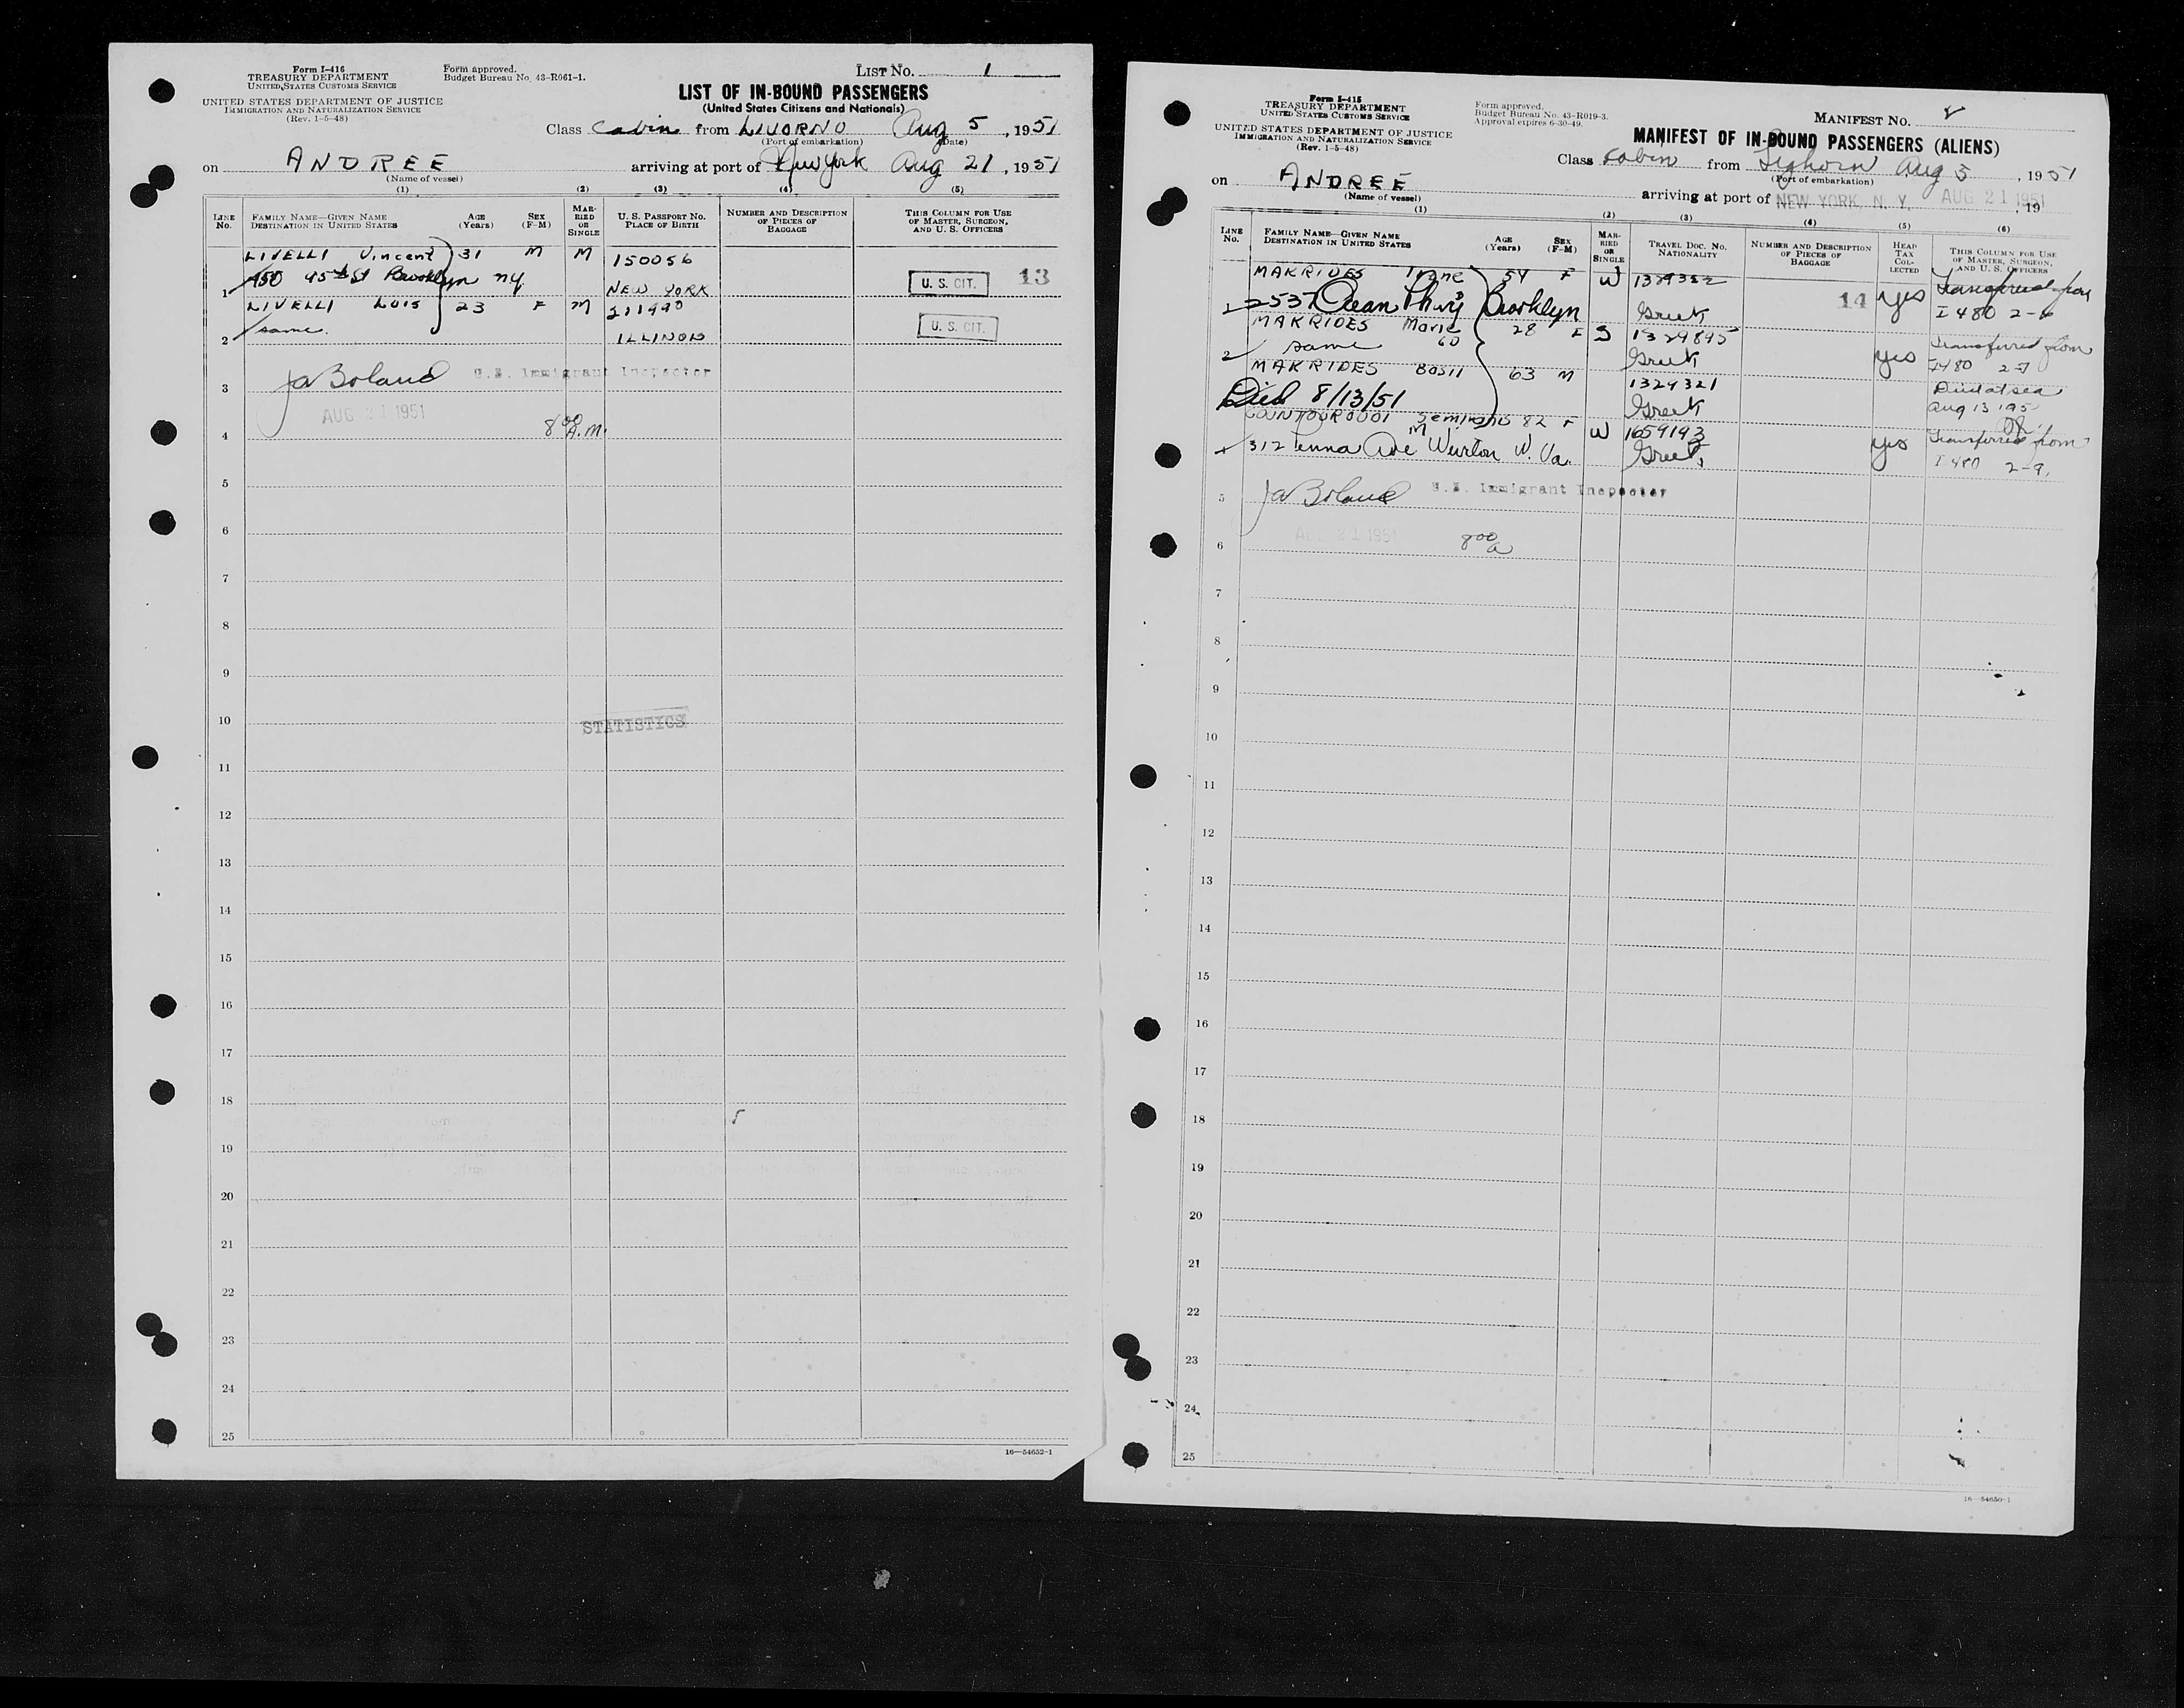 Form I-416
TREASURY DEPARTMENT
UNITED STATES CUSTOMS SERVICE
UNITED STATES DEPARTMENT OF JUSTICE
IMMIGRATION AND NATURALIZATION SERVICE
(Rev. 1-5-48)
Form approved.
Budget Bureau No. 43-R061-1.
LIST No. 1
LIST OF IN-BOUND PASSENGERS
(United States Citizens and Nationals)
Class Cabin from LIVORNO Aug 5, 1951
(Port of embarkation) (Date)
on ANDREE arriving at port of New York Aug 21, 1951
(Name of vessel)
(1) (2) (3) (4) (5)
LINE No.
FAMILY NAME—GIVEN NAME
DESTINATION IN UNITED STATES
AGE (Years)
SEX (F-M)
MARRIED OR SINGLE
U. S. PASSPORT No.
PLACE OF BIRTH
NUMBER AND DESCRIPTION OF PIECES OF BAGGAGE
THIS COLUMN FOR USE OF MASTER, SURGEON, AND U. S. OFFICERS
LIVELLI Vincent 31 M M 150056
1 450 45th St Brooklyn NY NEW YORK U. S. CIT. 13
LIVELLI LOIS 23 F M
2 same. ILLINOIS U. S. CIT.
3 Ja Boland U.S. Immigrant Inspector
AUG 21 1951
4 8 00 A.m.
5
6
7
8
9
10 STATISTICS
11
12
13
14
15
16
17
18
19
20
21
22
23
24
25
16—54652-1
Form I-415
TREASURY DEPARTMENT
UNITED STATES CUSTOMS SERVICE
UNITED STATES DEPARTMENT OF JUSTICE
IMMIGRATION AND NATURALIZATION SERVICE
(Rev. 1-5-48)
Form approved.
Budget Bureau No. 43-R019-3.
Approval expires 6-30-49.
MANIFEST No. 2
MANIFEST OF IN-BOUND PASSENGERS (ALIENS)
Class Cabin from Leghorn Aug 5, 1951
(Port of embarkation)
on ANDREE arriving at port of NEW YORK, N. Y. AUG 21 1951, 19
(Name of vessel)
(1) (2) (3) (4) (5) (6)
LINE No.
FAMILY NAME—GIVEN NAME
DESTINATION IN UNITED STATES
AGE (Years)
SEX (F-M)
MARRIED OR SINGLE
TRAVEL DOC. No.
NATIONALITY
NUMBER AND DESCRIPTION OF PIECES OF BAGGAGE
HEAD TAX COLLECTED
THIS COLUMN FOR USE OF MASTER, SURGEON, AND U. S. OFFICERS
MAKRIDES 54 F W Transferred from
1 2537 Ocean Pkwy Brooklyn Greek 14 yes I 480 2-6
MAKRIDES Marie 28 F S 1329895 Transferred from
2 same Greek yes I480 2-7
MAKRIDES Basil 63 M 1329321 Died at sea
Died 8/13/51 Greek Aug 13 195
82 F W 1659193 Transferred from
312 Ave Weirton W. Va. Greek yes I 480 2-9
5 Ja Boland U.S. Immigrant Inspector
AUG 21 1951
6 8 00 a
7
8
9
10
11
12
13
14
15
16
17
18
19
20
21
22
23
24
25
16—54650-1